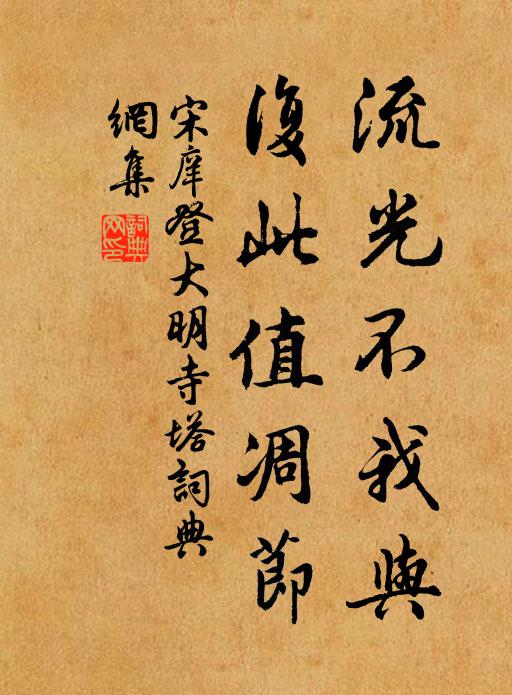 流光不我與
復此值凋節
宋庠登大明寺塔詞典
網集
詞典
网印